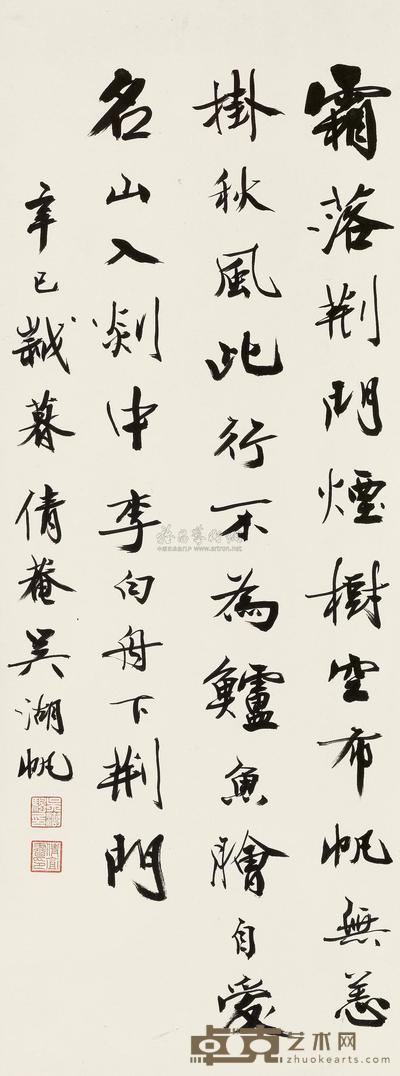 霜落荆門煙樹空布帆無恙
掛秋風此行不為鱸魚膾自愛
名山入剡中李白舟下荆門
辛巳歲暮倩菴吳湖帆
www.artron.net
卓克艺术网
zhuokearts.com